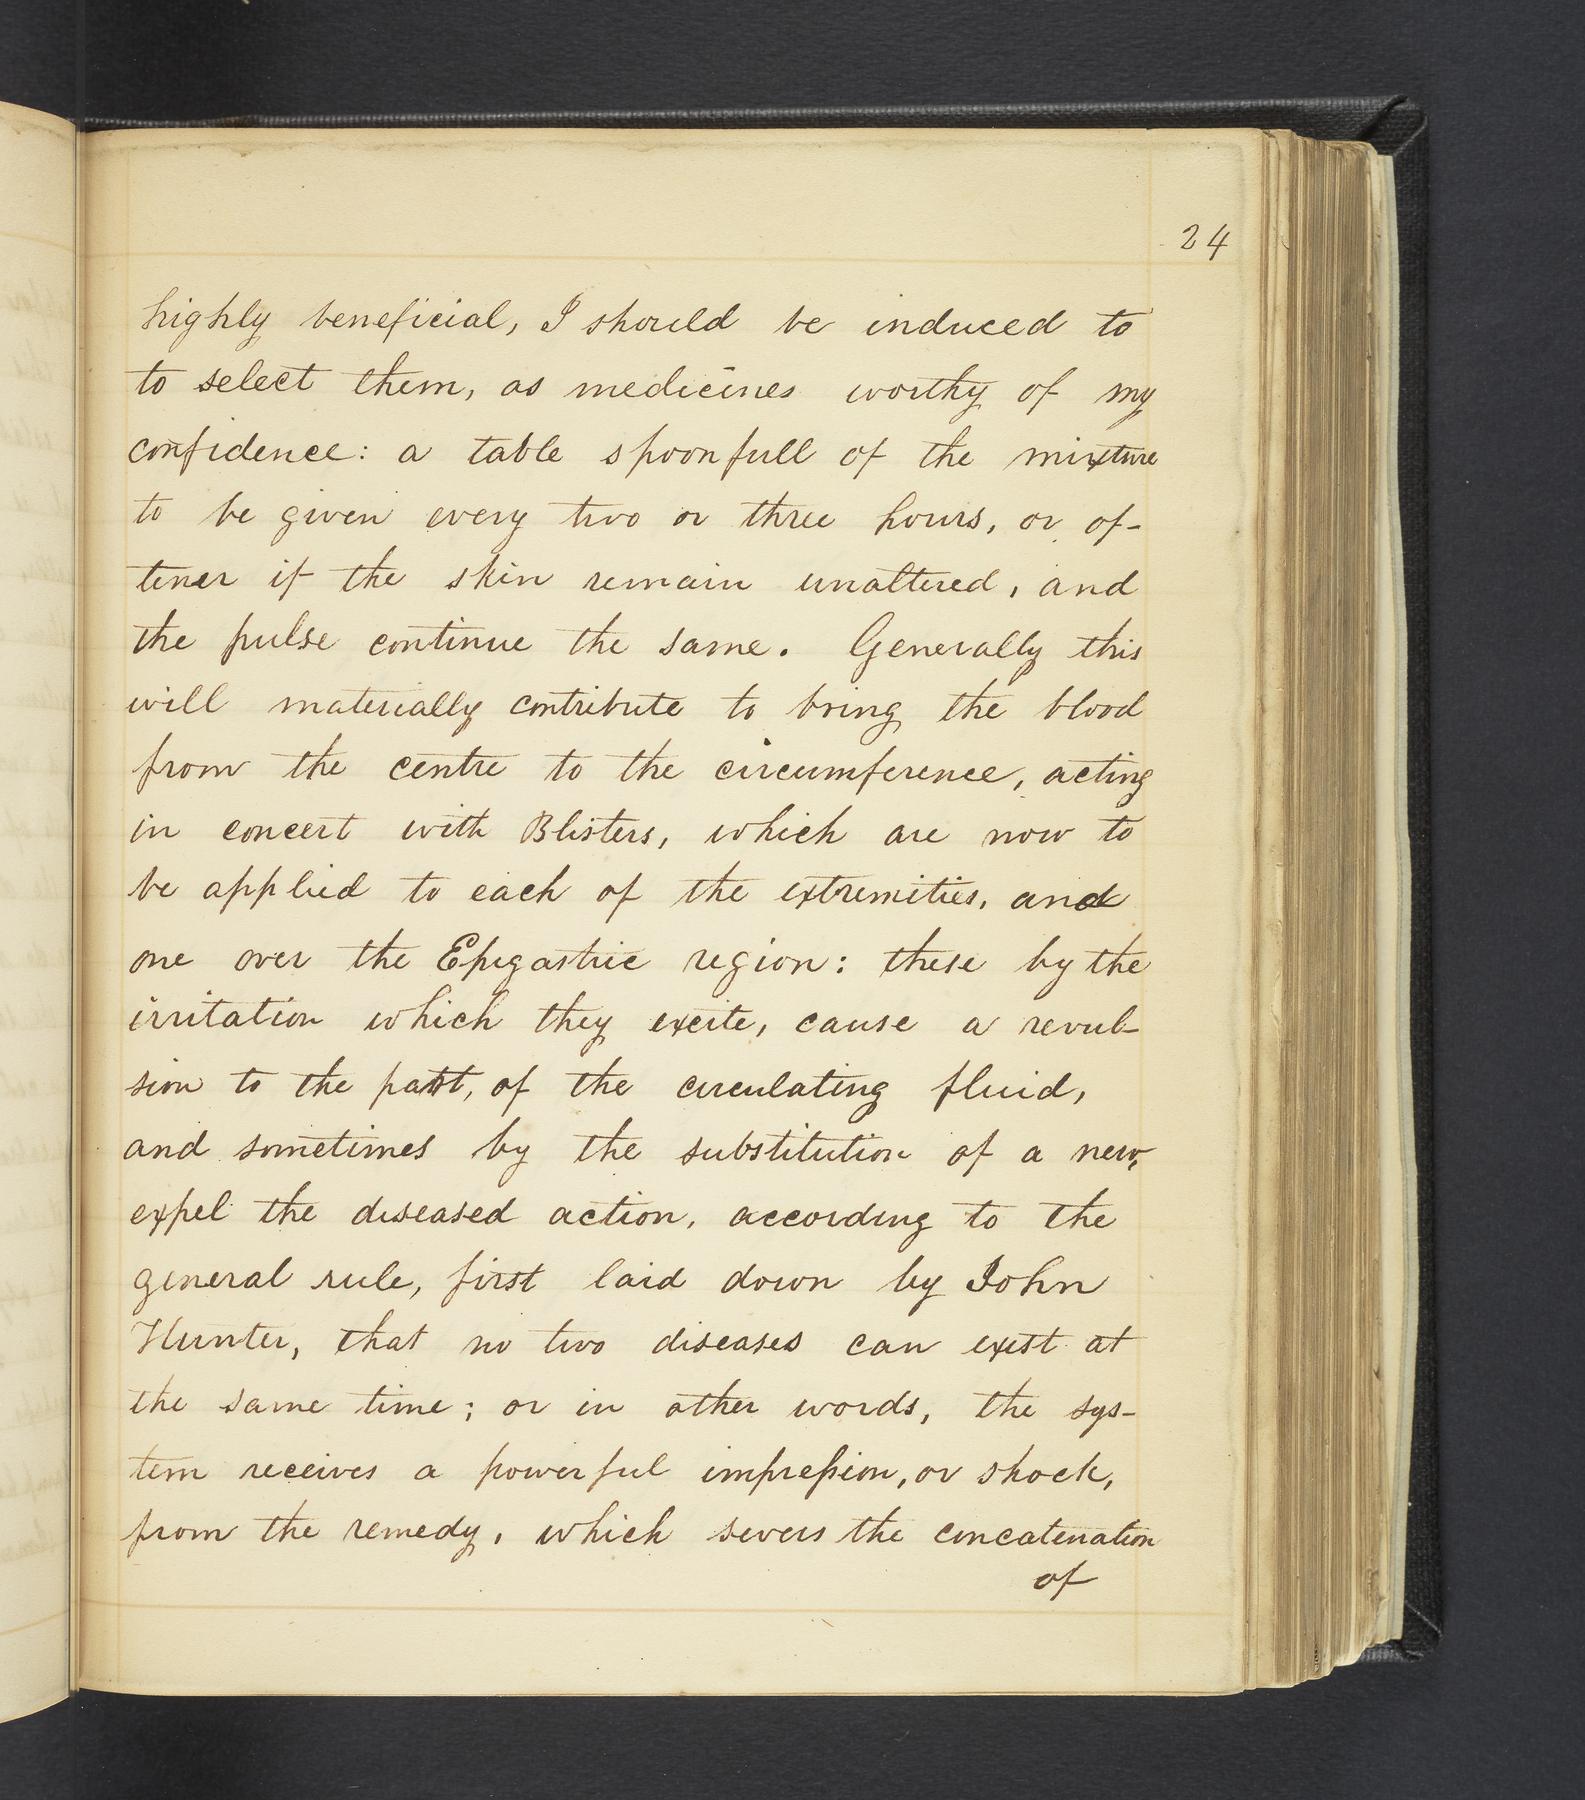 24
highly beneficial, I should be induced to
to select them, as medicines worthy of my
confidence: a table spoonfull of the mixture
to be given every two or three hours, or of-
tener if the skin remain unaltered, and
the pulse continue the same. Generally this
will materially contribute to bring the blood
from the centre to the circumference, acting
in concert with Blisters, which are now to
be applied to each of the extremities, and
one over the Epigastric region: these by the
irritation which they excite, cause a revul-
sion to the part, of the circulating fluid,
and sometimes by the substitution of a new,
expel the diseased action, according to the
general rule, first laid down by John
Hunter, that no two diseases can exist at
the same time; or in other words, the sys-
tem receives a powerful impreſsion, or shock,
from the remedy, which severs the concatenation
of